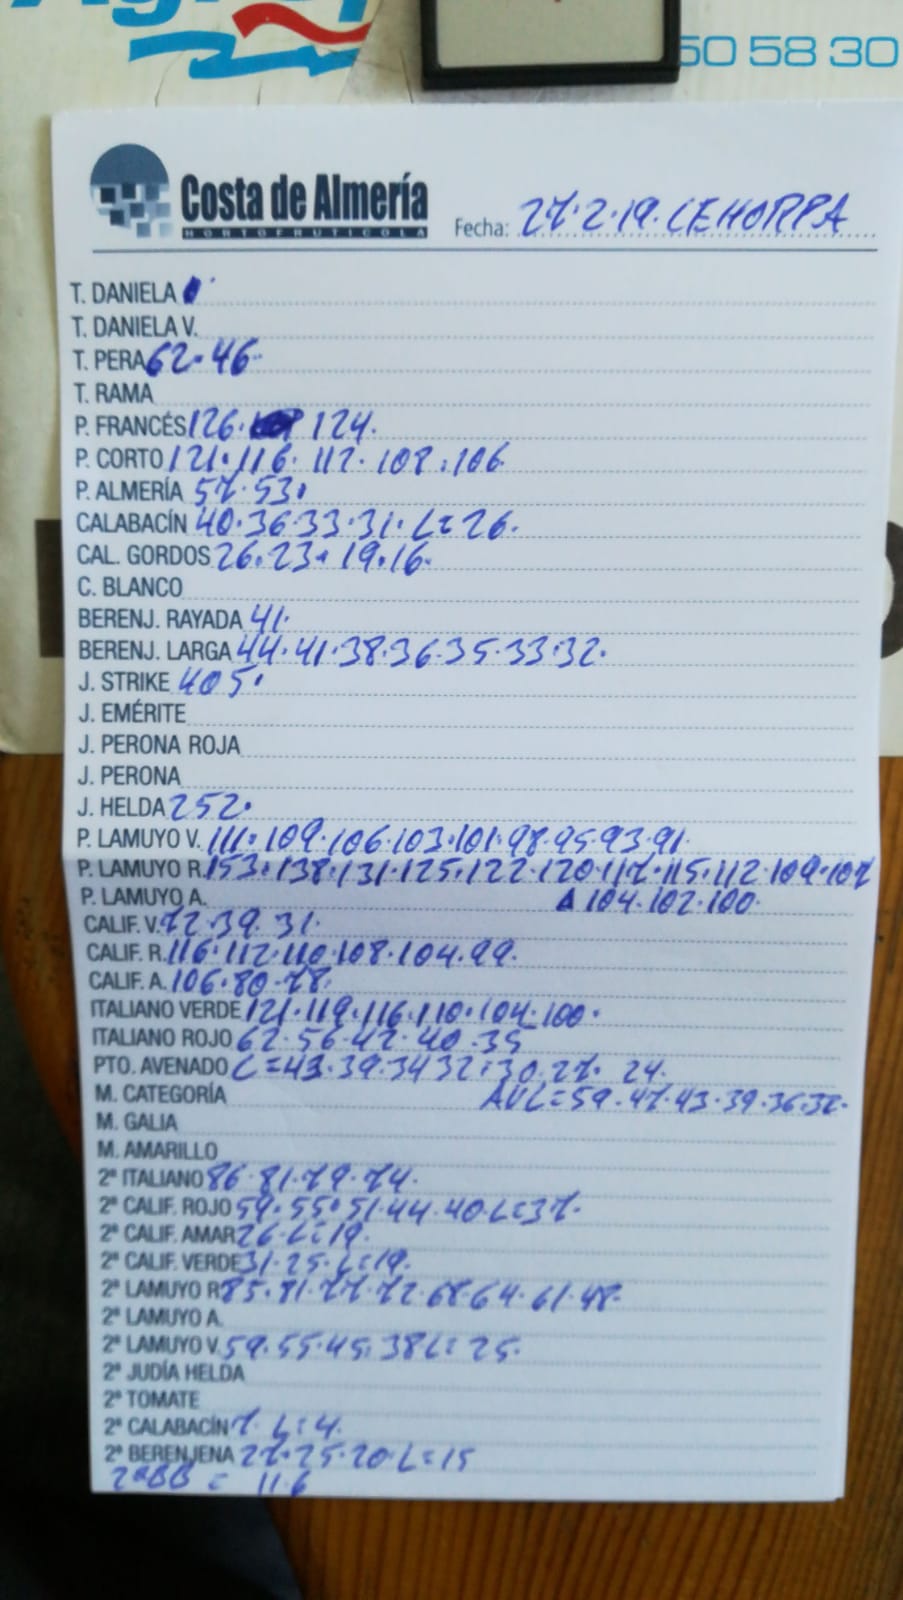 50 58 30
Costa de Almería
HORTOFRUTICOLA
Fecha: 27.2.19. CEHORPA
T. DANIELA
T. DANIELA V.
T. PERA 62.46.
T. RAMA
P. FRANCÉS 126. 124.
P. CORTO 121.116.112.108.106
P. ALMERÍA 57.53.
CALABACÍN 40.36.33.31.L=26.
CAL. GORDOS 26.23.19.16.
C. BLANCO
BERENJ. RAYADA 41.
BERENJ. LARGA 44.41.38.36.35.33.32.
J. STRIKE 405.
J. EMÉRITE
J. PERONA ROJA
J. PERONA
J. HELDA 252.
P. LAMUYO V. 111.109.106.103.101.98.95.93.91.
P. LAMUYO R. 153.138.131.125.122.120.117.115.112.109.107
P. LAMUYO A. 104.102.100.
CALIF. V. 72.39.31.
CALIF. R. 116.112.110.108.104.99.
CALIF. A. 106.80.78.
ITALIANO VERDE 121.119.116.110.104.100.
ITALIANO ROJO 62.56.47.40.35
PTO. AVENADO L=43.39.34 32.30.27. 24.
M. CATEGORÍA AVL=59.47.43.39.36.32.
M. GALIA
M. AMARILLO
2ª ITALIANO 86.81.79.74.
2ª CALIF. ROJO 59.55.51.44.40.L=37.
2ª CALIF. AMAR 26.L=19.
2ª CALIF. VERDE 31.25.L=19.
2ª LAMUYO R 85.81.77.72.68.64.61.48.
2ª LAMUYO A.
2ª LAMUYO V. 59.55.45.38 L=25.
2ª JUDÍA HELDA
2ª TOMATE
2ª CALABACÍN 7. L=4.
2ª BERENJENA 27.25.20.L=15
2ªBB = 11.6